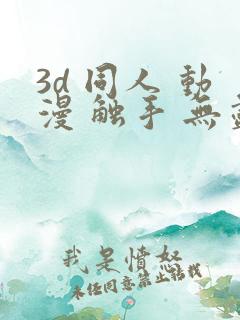 3d 同人 動
漫 触手 無
我是憤怒
未经同意禁止转载